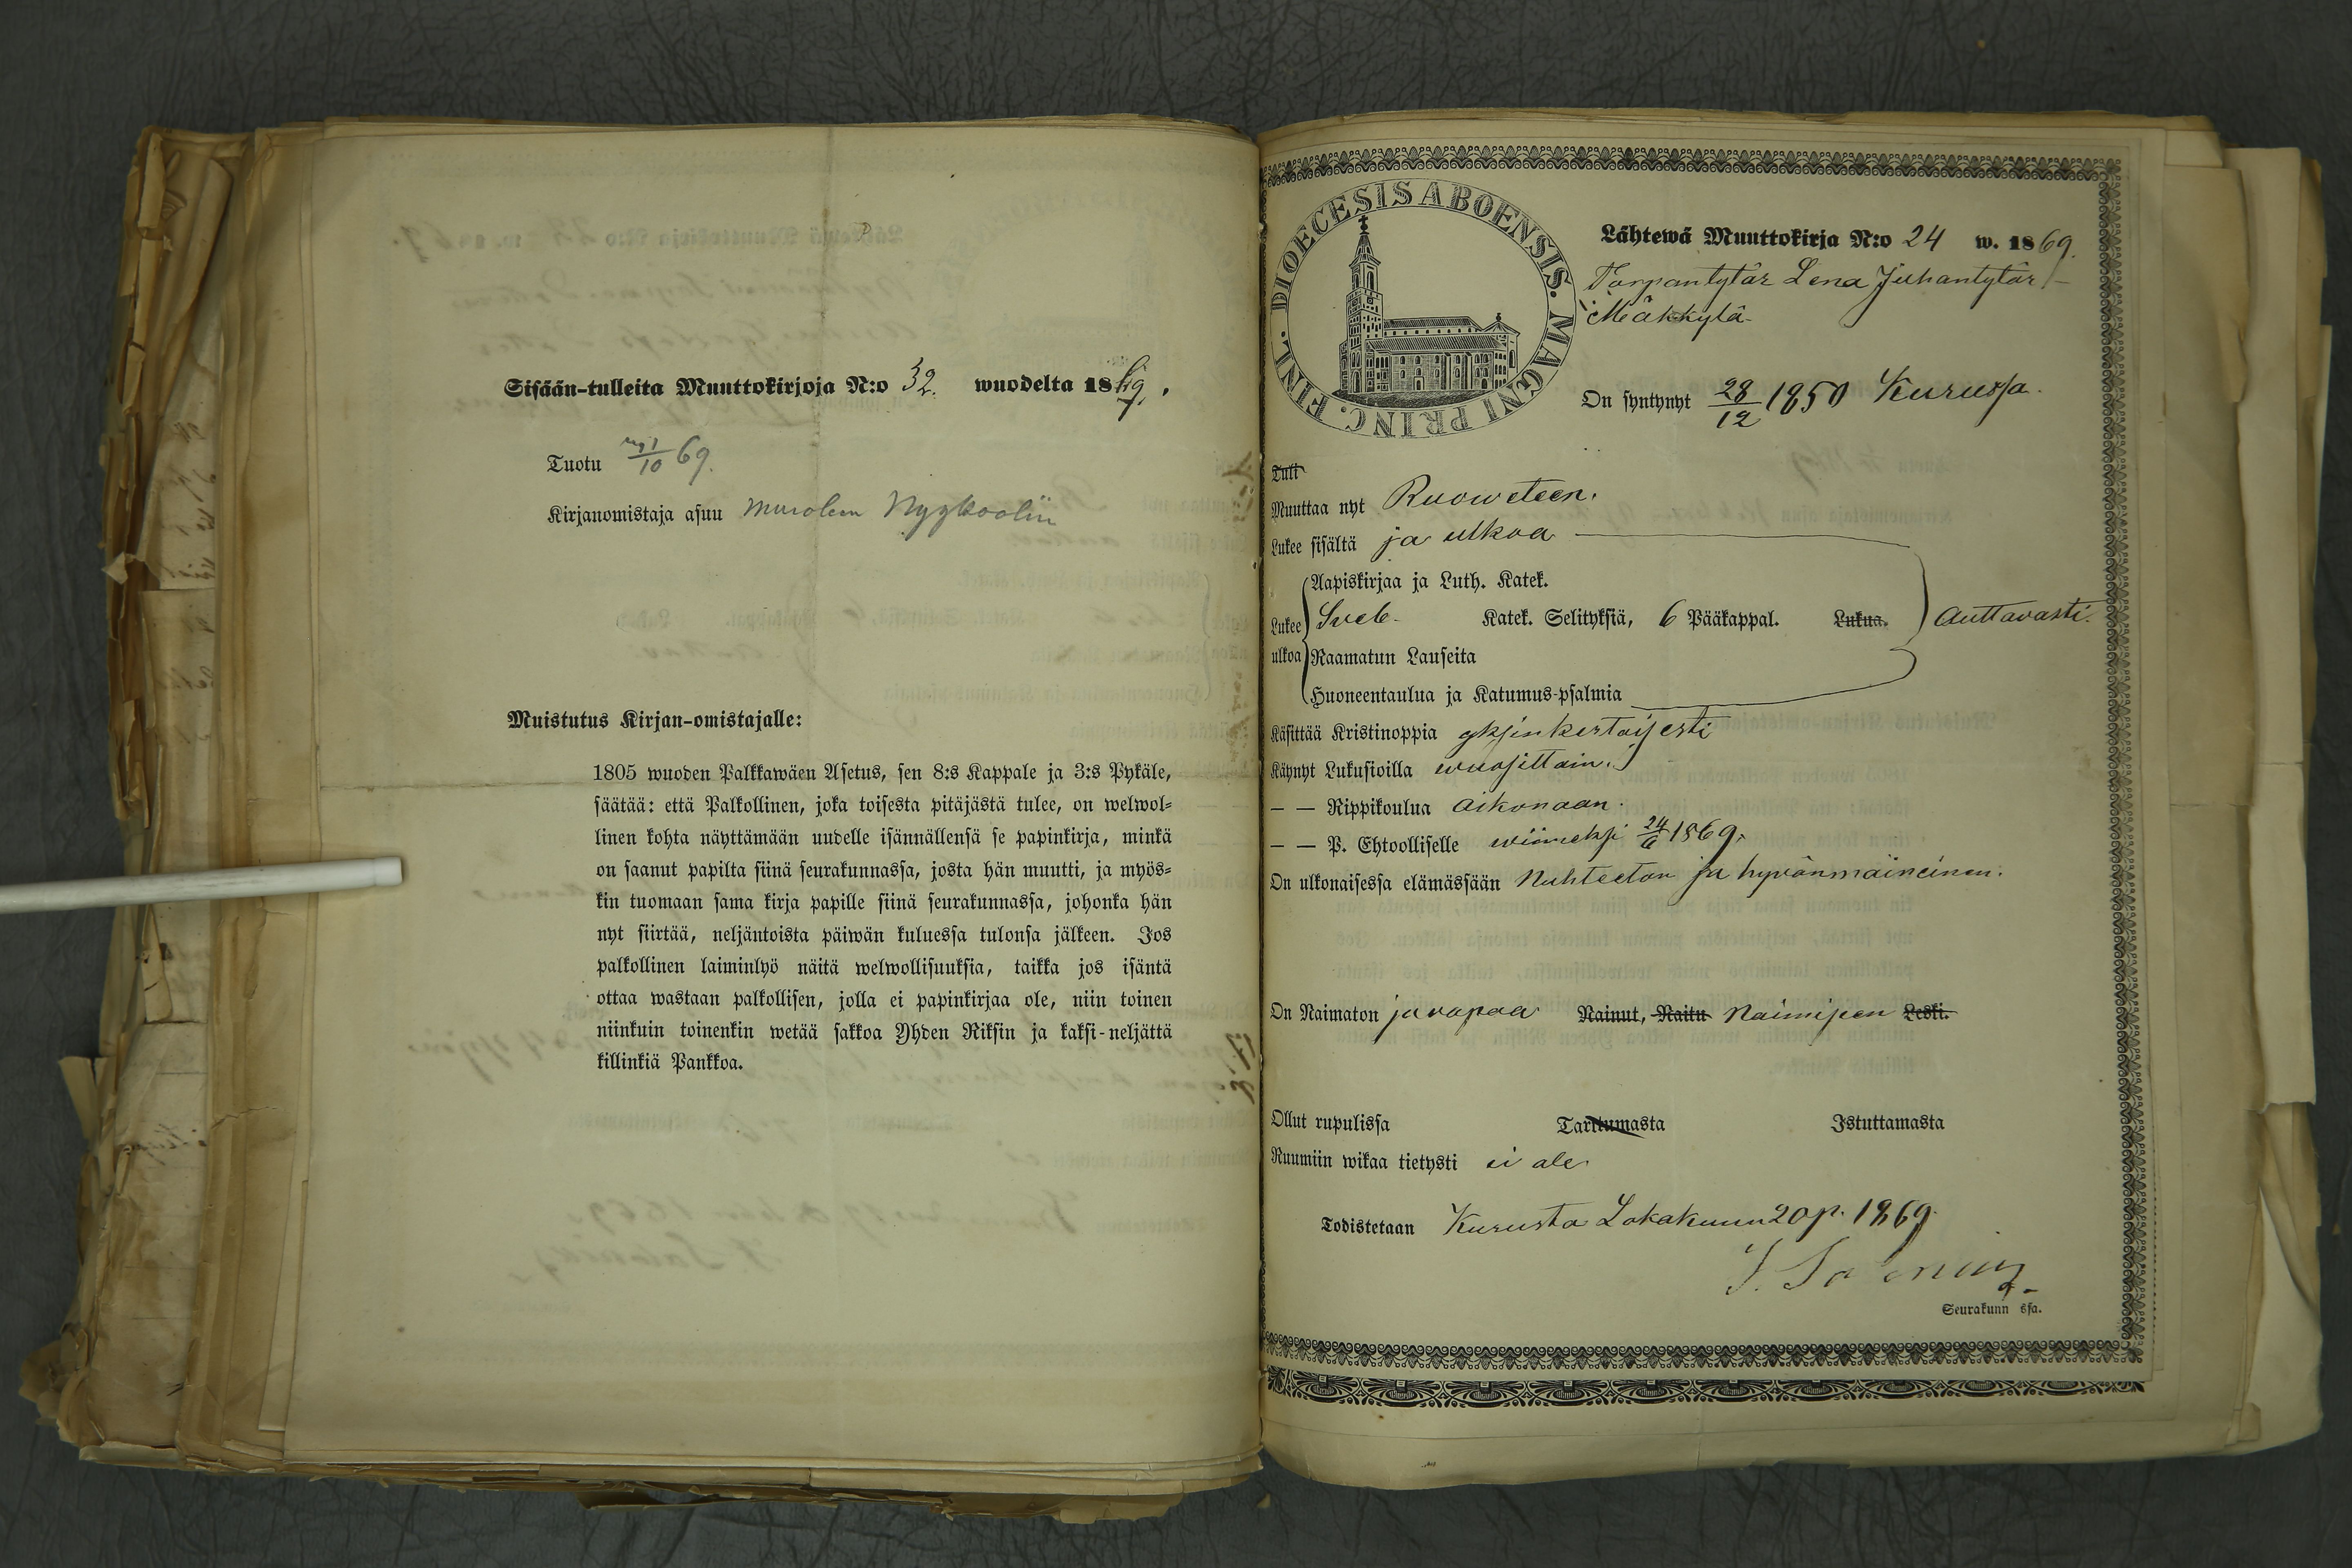 Sisään-tulleita Muuttokirjoja N:o 32. wuodelta 1869.
Tuotu /10 69.
Kirjanomistaja asuu Muroleen
Muistutus Kirjan-omistajalle:
1805 wuoden Palkkawäen Asetus, sen 8:s Kappale ja 3:s Pykäle,
säätää: että Palkollinen, joka toisesta pitäjästä tulee, on welwol-
linen kohta näyttämään uudelle isännällensä se papinkirja, minkä
on saanut papilta siinä seurakunnassa, josta hän muutti, ja myös-
kin tuomaan sama kirja papille siinä seurakunnassa, johonka hän
nyt siirtää, neljäntoista päiwän kuluessa tulonsa jälkeen. Jos
palkollinen laiminlyö näitä welwollisuuksia, taikka jos isäntä
ottaa wastaan palkollisen, jolla ei papinkirjaa ole, niin toinen
niinkuin toinenkin wetää sakkoa Yhden Riksin ja kaksi-neljättä
killinkiä Pankkoa.
DIOECESIS ABOENSIS. MAGNI PRINC. FINL.
Lähtewä Muuttokirja N:o 24 w. 1869.
Torpantytär Lena Juhantytär
Mäkkylä
On syntynyt 28/12 1850 Kurussa.
Tult
Muuttaa nyt Ruoweteen.
Lukee sisältä ja ulkoa
Aapiskirjaa ja Luth. Katek.
Lukee ulkoa Sveb. Katek. Selityksiä, 6 Pääkappal. Lukua. auttavasti.
Raamatun Lauseita
Huoneentaulua ja Katumus-psalmia
Käsittää Kristinoppia yksinkertaisesti
Käynyt Lukusioilla wuosittain.
— — Rippikoulua aikonaan.
— — P. Ehtoolliselle wiimeksi 24/6 1869.
On ulkonaisessa elämässään Nuhteeton ja hyvänmaineinen.
On Naimaton ja vapaa Nainut, Naitu Naimiseen Leski.
Ollut rupulissa Tarttumasta Istuttamasta
Ruumiin wikaa tietysti ei ole
Todistetaan Kurusta Lokakuun 20 p. 1869.
Seurakunn ssa.